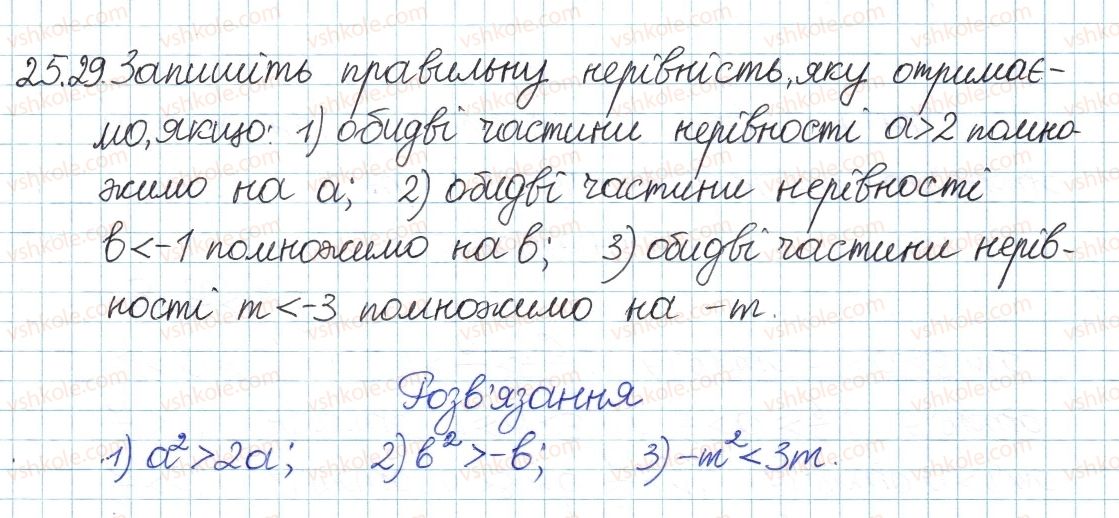 25.29. Запишіть правильну нерівність, яку отримає-
мо, якщо: 1) обидві частини нерівності a>2 помно-
жимо на a; 2) обидві частини нерівності
b<-1 помножимо на b; 3) обидві частини нерів-
ності m<-3 помножимо на -m.
Розв'язання
1) a²>2a; 2) b²>-b; 3) -m²<3m.